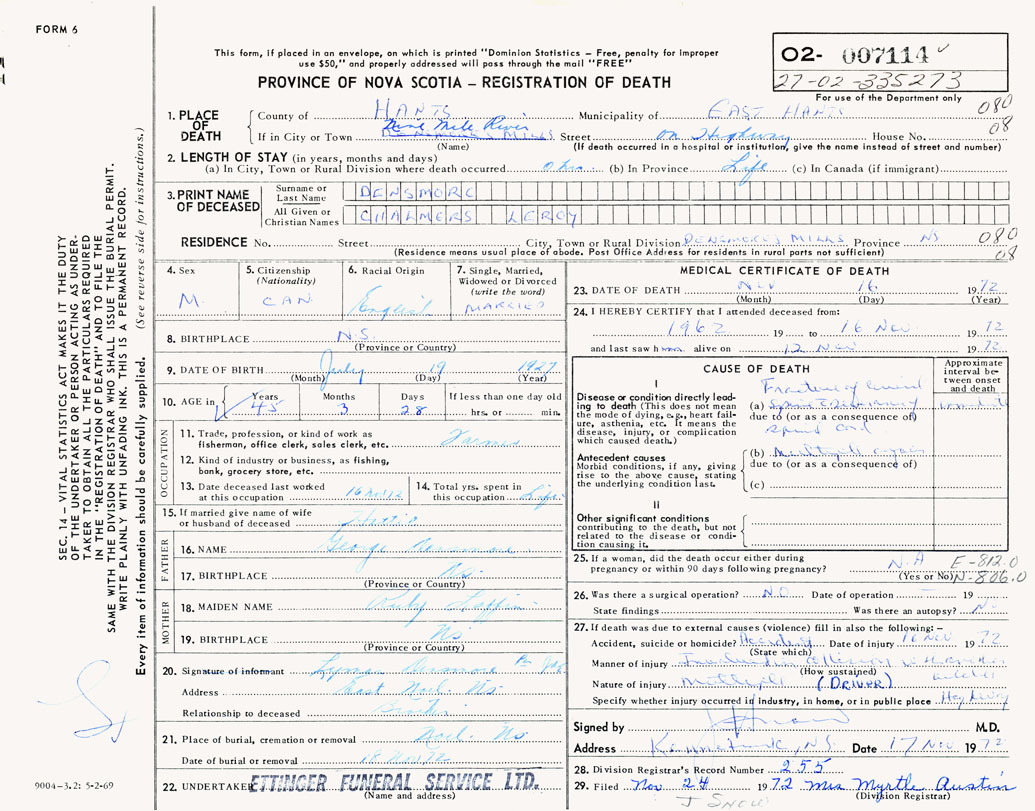 FORM 6
This form, if placed in an envelope, on which is printed "Dominion Statistics – Free, penalty for improper
use $50," and properly addressed will pass through the mail "FREE"
PROVINCE OF NOVA SCOTIA – REGISTRATION OF DEATH
O2- 007114
27-02-335273
For use of the Department only
080
08
1. PLACE OF DEATH
County of HANTS Municipality of EAST HANTS
If in City or Town Nine Mile River Street on Highway House No.
(Name) (If death occurred in a hospital or institution, give the name instead of street and number)
2. LENGTH OF STAY (in years, months and days)
(a) In City, Town or Rural Division where death occurred (b) In Province Life (c) In Canada (if immigrant)
3. PRINT NAME OF DECEASED
Surname or Last Name DENSMORE
All Given or Christian Names CHALMERS LEROY
RESIDENCE No. Street City, Town or Rural Division DENSMORES MILLS Province NS 080
(Residence means usual place of abode. Post Office Address for residents in rural parts not sufficient) 08
4. Sex M.
5. Citizenship (Nationality) CAN.
6. Racial Origin English
7. Single, Married, Widowed or Divorced (write the word) MARRIED
8. BIRTHPLACE N.S.
(Province or Country)
9. DATE OF BIRTH July 19 1927
(Month) (Day) (Year)
10. AGE in Years 45 Months 3 Days 28 If less than one day old
hrs. or min.
OCCUPATION
11. Trade, profession, or kind of work as
fisherman, office clerk, sales clerk, etc. Farmer
12. Kind of industry or business, as fishing,
bank, grocery store, etc.
13. Date deceased last worked
at this occupation 16 Nov 72
14. Total yrs. spent in
this occupation Life
15. If married give name of wife
or husband of deceased Hattie
FATHER
16. NAME George Densmore
17. BIRTHPLACE NS.
(Province or Country)
MOTHER
18. MAIDEN NAME Ruby Laffin
19. BIRTHPLACE NS
(Province or Country)
20. Signature of informant Lyman Densmore
Address East Noel. NS.
Relationship to deceased Brother
21. Place of burial, cremation or removal Noel. NS
Date of burial or removal 18 Nov 72
22. UNDERTAKER ETTINGER FUNERAL SERVICE LTD.
(Name and address)
MEDICAL CERTIFICATE OF DEATH
23. DATE OF DEATH Nov 16 1972
(Month) (Day) (Year)
24. I HEREBY CERTIFY that I attended deceased from:
1962 19 to 16 Nov 1972
and last saw h alive on 12 Nov 1972
CAUSE OF DEATH
Approximate interval between onset and death
I
Disease or condition directly leading to death (This does not mean the mode of dying, e.g., heart failure, asthenia, etc. It means the disease, injury, or complication which caused death.)
Fracture of
(a) Spine
due to (or as a consequence of)
spinal cord
Antecedent causes
Morbid conditions, if any, giving rise to the above cause, stating the underlying condition last.
(b) Multiple
due to (or as a consequence of)
(c)
II
Other significant conditions contributing to the death, but not related to the disease or condition causing it.
25. If a woman, did the death occur either during
pregnancy or within 90 days following pregnancy? N.A
(Yes or No)
E-812.0
N-806.0
26. Was there a surgical operation? NO Date of operation 19
State findings Was there an autopsy? No
27. If death was due to external causes (violence) fill in also the following: –
Accident, suicide or homicide? Accident Date of injury 16 Nov 1972
(State which)
Manner of injury collision
(How sustained)
Nature of injury Multiple (DRIVER)
Specify whether injury occurred in industry, in home, or in public place Highway
Signed by M.D.
Address Kennetcook, NS. Date 17 Nov 1972
28. Division Registrar's Record Number 255
29. Filed Nov 24 1972 Mrs Myrtle Austin
(Division Registrar)
J SNOW
SEC. 14 – VITAL STATISTICS ACT MAKES IT THE DUTY
OF THE UNDERTAKER OR PERSON ACTING AS UNDER-
TAKER TO OBTAIN ALL THE PARTICULARS REQUIRED
IN THE "REGISTRATION OF DEATH" AND TO FILE THE
SAME WITH THE DIVISION REGISTRAR WHO SHALL ISSUE THE BURIAL PERMIT.
WRITE PLAINLY WITH UNFADING INK. THIS IS A PERMANENT RECORD.
Every item of information should be carefully supplied. (See reverse side for instructions.)
9004-3.2: 5-2-69